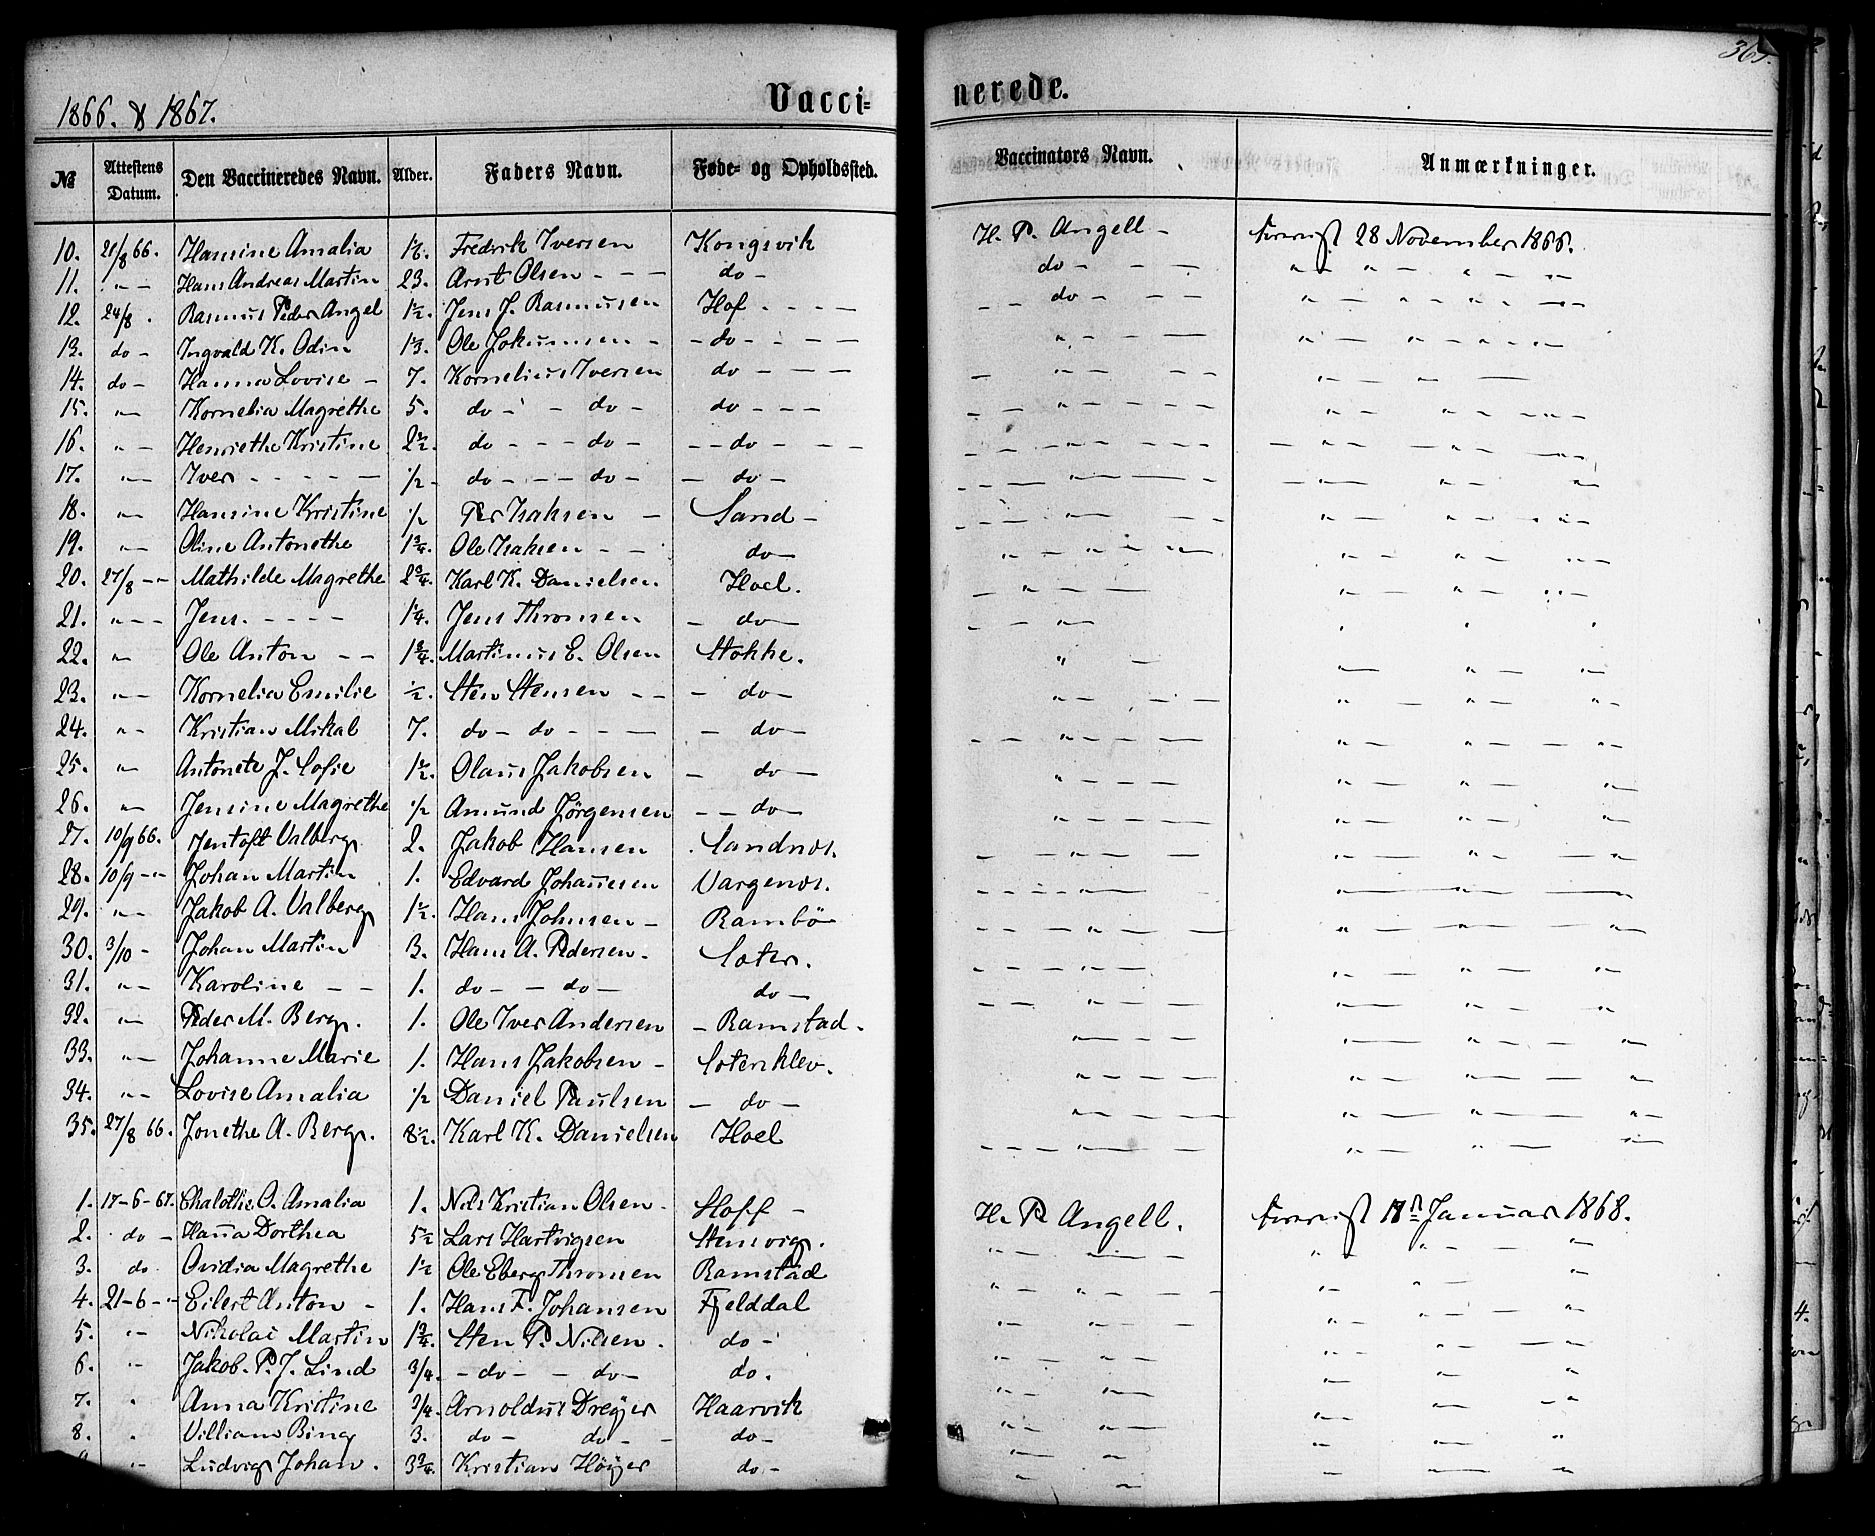 365.
1866. & 1867.
Vacci-
nerede.
№ Attestens Datum. Den Vaccineredes Navn. Alder. Faders Navn. Føde- og Opholdssted. Vaccinators Navn. Anmærkninger.
10. 21/8 66. Hansine Amalia Fredrik Iversen Kongsvik H. P. Angell - 28 November 1866.
11. " - Hans Andreas Martin 23. Arnt Olsen - - - do - do - - -
12. 24/8 . Rasmus Peder Angel 1½. Jens J. Rasmusen Hof - - - - do - - -
13. do - Ingvald K. Odin Ole - do - - - -
14. do - Hanna Lovise - 7. Kornelius Iversen do - - - -
15. " - Kornelia Magrethe 5. do - - do - do - - -
16. " - Henriethe Kristine 2½. do - - - do - - - do - - -
17. " - Iver - - - - - ½ - do - - - do - - do -
18. " - Hansine Kristine ½ Per Isaksen - Sand -
19. " - Oline Antonethe 1¾. Ole Isaksen - - do -
20. 27/8 - - Mathilde Magrethe 2¾. Karl K. Danielsen. Hoel.
21. " - - Jens. - - - - 1¼. Jens Thromsen - do -
22. " - Ole Anton - - 1¾. Martinus E. Olsen Stokke.
23. " - Kornelia Emilie ½. Sten Stensen - - - do -
24. " - Kristian Mikal 7. do - do - - - - do -
25. " - Antonete J. Sofie 1½. Olaus Jakobsen - do -
26. " - Jensine Magrethe ½ Amund Jørgensen - - do -
27. 10/9 66. Jentoft Valberg. 2. Jakob Hansen Sandnes.
28. 10/9 - - Johan Martin 1. Edvard Johannesen Vargenes.
29. " - Jakob A. Valberg 1½. Hans Johnsen - Rambø
30. 3/10 - Johan Martin 3. Hans A. Pedersen. Soter.
31. " - Karoline - - 1. do - - do - do -
32. " - Peder M. Berg. 1. Ole Iver Andersen - Ramstad.
33. " - Johanne Marie 1. Hans Jakobsen - Soterklev.
34. " - Lovise Amalia ½ Daniel Paulsen - do -
35. 27/8 66. Jonethe A. Berg. 8½. Karl K. Danielsen Hoel
1. 17-6-67. Chalothe O. Amalia 1. Nils Kristian Olsen. Hoff - H. P. Angell. Januar 1868.
2. do - Hanna Dorthea 5½ Lars Hartvigsen Stensvig.
3. do. Ovidia Magrethe 1½ Ole Eberg Thromsen Ramstad
4. 21-6- - Eilert Anton - 1. Hans F. Johansen Fjelddal
5. " - Nikolai Martin 1¾. Sten P. Nilsen. do -
6. " - Jakob. P. J. Lind 3/4. - do - - do - do.
7. " Anna Kristine 3/4. Arnoldus Dreyer Haarvik
8. " Villiam Bing 3. do - do - - do -
" - Ludvig Johan. 3¾. Kristian Høyer do -